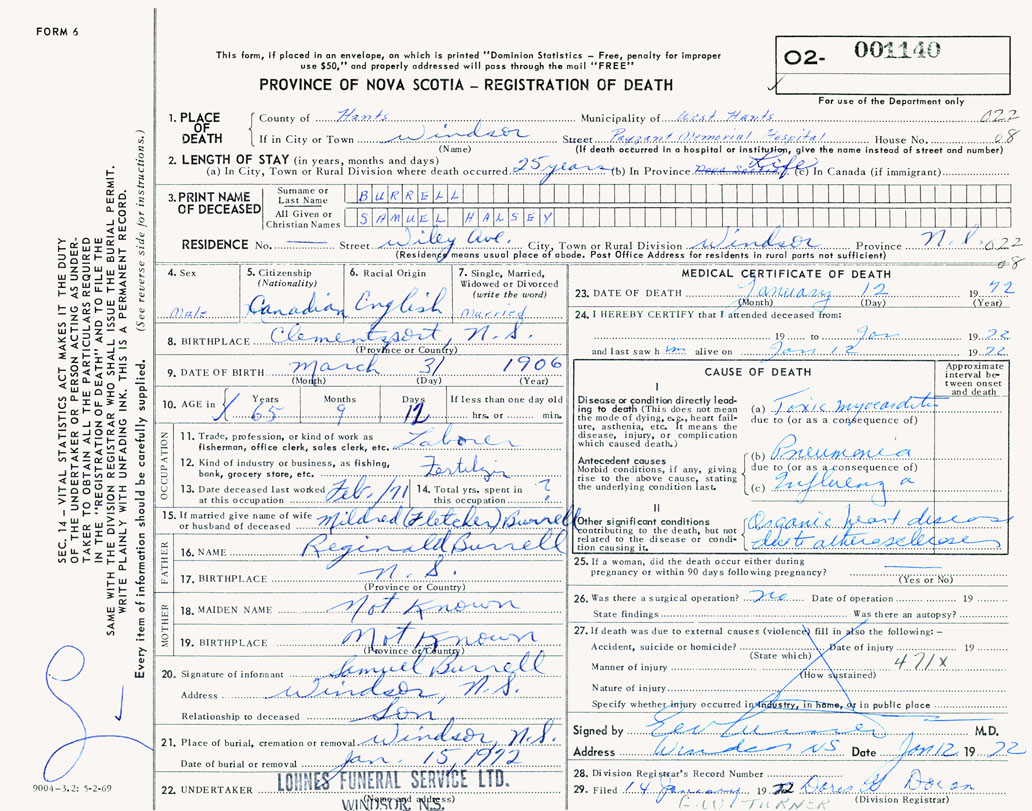 FORM 6
This form, if placed in an envelope, on which is printed "Dominion Statistics – Free, penalty for improper
use $50," and properly addressed will pass through the mail "FREE"
PROVINCE OF NOVA SCOTIA – REGISTRATION OF DEATH
02- 001140
For use of the Department only
1. PLACE OF DEATH
County of Hants Municipality of West Hants 022
If in City or Town Windsor Street Payzant Memorial Hospital House No. 08
(Name) (If death occurred in a hospital or institution, give the name instead of street and number)
2. LENGTH OF STAY (in years, months and days)
(a) In City, Town or Rural Division where death occurred 25 years (b) In Province Nova Scotia Life (c) In Canada (if immigrant)
3. PRINT NAME OF DECEASED
Surname or Last Name BURRELL
All Given or Christian Names SAMUEL HALSEY
RESIDENCE No. — Street Wiley Ave. City, Town or Rural Division Windsor Province N.S. 022
(Residence means usual place of abode. Post Office Address for residents in rural parts not sufficient) 08
4. Sex Male
5. Citizenship (Nationality) Canadian
6. Racial Origin English
7. Single, Married, Widowed or Divorced (write the word) Married
8. BIRTHPLACE Clementsport, N.S.
(Province or Country)
9. DATE OF BIRTH March 31 1906
(Month) (Day) (Year)
10. AGE in Years 65 Months 9 Days 12 If less than one day old
hrs. or min.
OCCUPATION
11. Trade, profession, or kind of work as
fisherman, office clerk, sales clerk, etc. Laborer
12. Kind of industry or business, as fishing,
bank, grocery store, etc. Fertilizer
13. Date deceased last worked at this occupation Feb./71
14. Total yrs. spent in this occupation ?
15. If married give name of wife
or husband of deceased Mildred (Fletcher) Burrell
FATHER
16. NAME Reginald Burrell
17. BIRTHPLACE N.S.
(Province or Country)
MOTHER
18. MAIDEN NAME Not Known
19. BIRTHPLACE Not Known
(Province or Country)
20. Signature of informant Samuel Burrell
Address Windsor, N.S.
Relationship to deceased Son
21. Place of burial, cremation or removal Windsor, N.S.
Date of burial or removal Jan. 15, 1972
22. UNDERTAKER LOHNES FUNERAL SERVICE LTD.
(Name and address)
WINDSOR, N.S.
MEDICAL CERTIFICATE OF DEATH
23. DATE OF DEATH January 12 1972
(Month) (Day) (Year)
24. I HEREBY CERTIFY that I attended deceased from:
19 to Jan 1972
and last saw him alive on Jan 12 1972
CAUSE OF DEATH
Approximate interval between onset and death
I
Disease or condition directly leading
to death (This does not mean
the mode of dying, e.g., heart failure,
asthenia, etc. It means the
disease, injury, or complication
which caused death.)
(a) Toxic myocarditis
due to (or as a consequence of)
Antecedent causes
Morbid conditions, if any, giving
rise to the above cause, stating
the underlying condition last.
(b) Pneumonia
due to (or as a consequence of)
(c) Influenza
II
Other significant conditions
contributing to the death, but not
related to the disease or condition
causing it.
Organic heart disease
due to atherosclerosis
25. If a woman, did the death occur either during
pregnancy or within 90 days following pregnancy? —
(Yes or No)
26. Was there a surgical operation? no Date of operation 19
State findings Was there an autopsy?
27. If death was due to external causes (violence) fill in also the following: –
Accident, suicide or homicide? Date of injury 19
(State which)
Manner of injury 471X
(How sustained)
Nature of injury
Specify whether injury occurred in industry, in home, or in public place
Signed by M.D.
Address Windsor NS Date Jan 12 1972
28. Division Registrar's Record Number
29. Filed 14 January 1972 Doran
E.W. TURNER (Division Registrar)
SEC. 14 – VITAL STATISTICS ACT MAKES IT THE DUTY
OF THE UNDERTAKER OR PERSON ACTING AS UNDER-
TAKER TO OBTAIN ALL THE PARTICULARS REQUIRED
IN THE "REGISTRATION OF DEATH" AND TO FILE THE
SAME WITH THE DIVISION REGISTRAR WHO SHALL ISSUE THE BURIAL PERMIT.
WRITE PLAINLY WITH UNFADING INK. THIS IS A PERMANENT RECORD.
Every item of information should be carefully supplied. (See reverse side for instructions.)
9004-3.2: 5-2-69